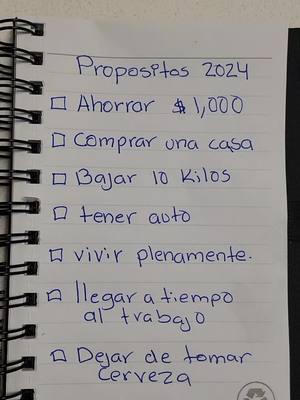 Propositos 2024
Ahorrar $1,000
comprar una casa
Bajar 10 Kilos
tener auto
vivir plenamente.
llegar a tiempo
al trabajo
Dejar de tomar
cerveza